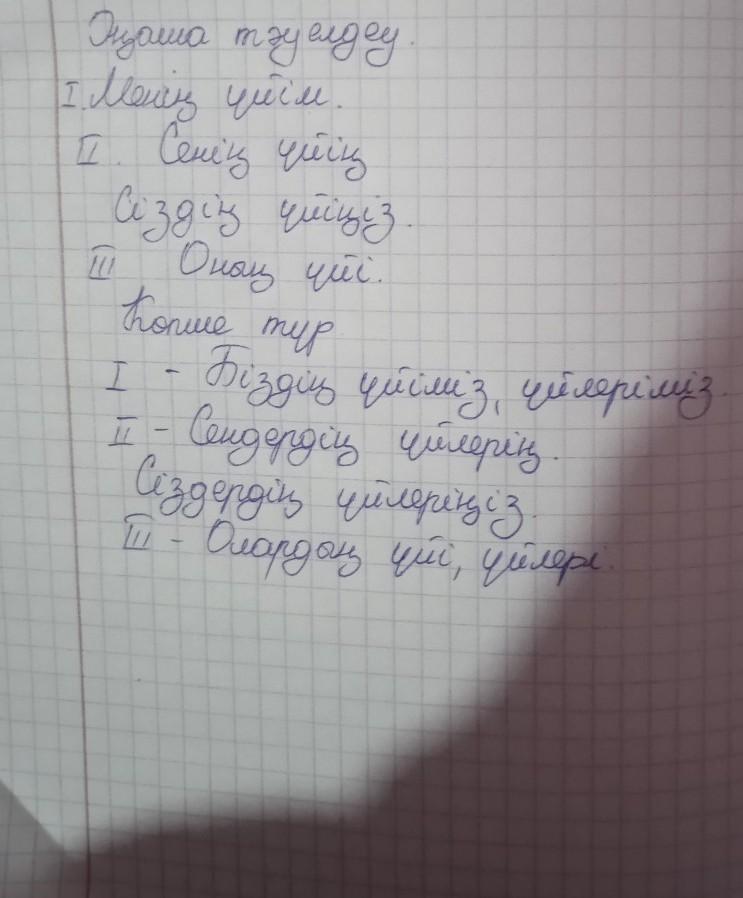 Оңаша тәуелдеу.
I. Менің үйім.
II. Сенің үйің
Сіздің үйіңіз.
III Оның үйі.
Көпше түр
I - Біздің үйіміз, үйлеріміз.
II - Сендердің үйлерің.
Сіздердің үйлеріңіз.
III - Олардың үйі, үйлері.